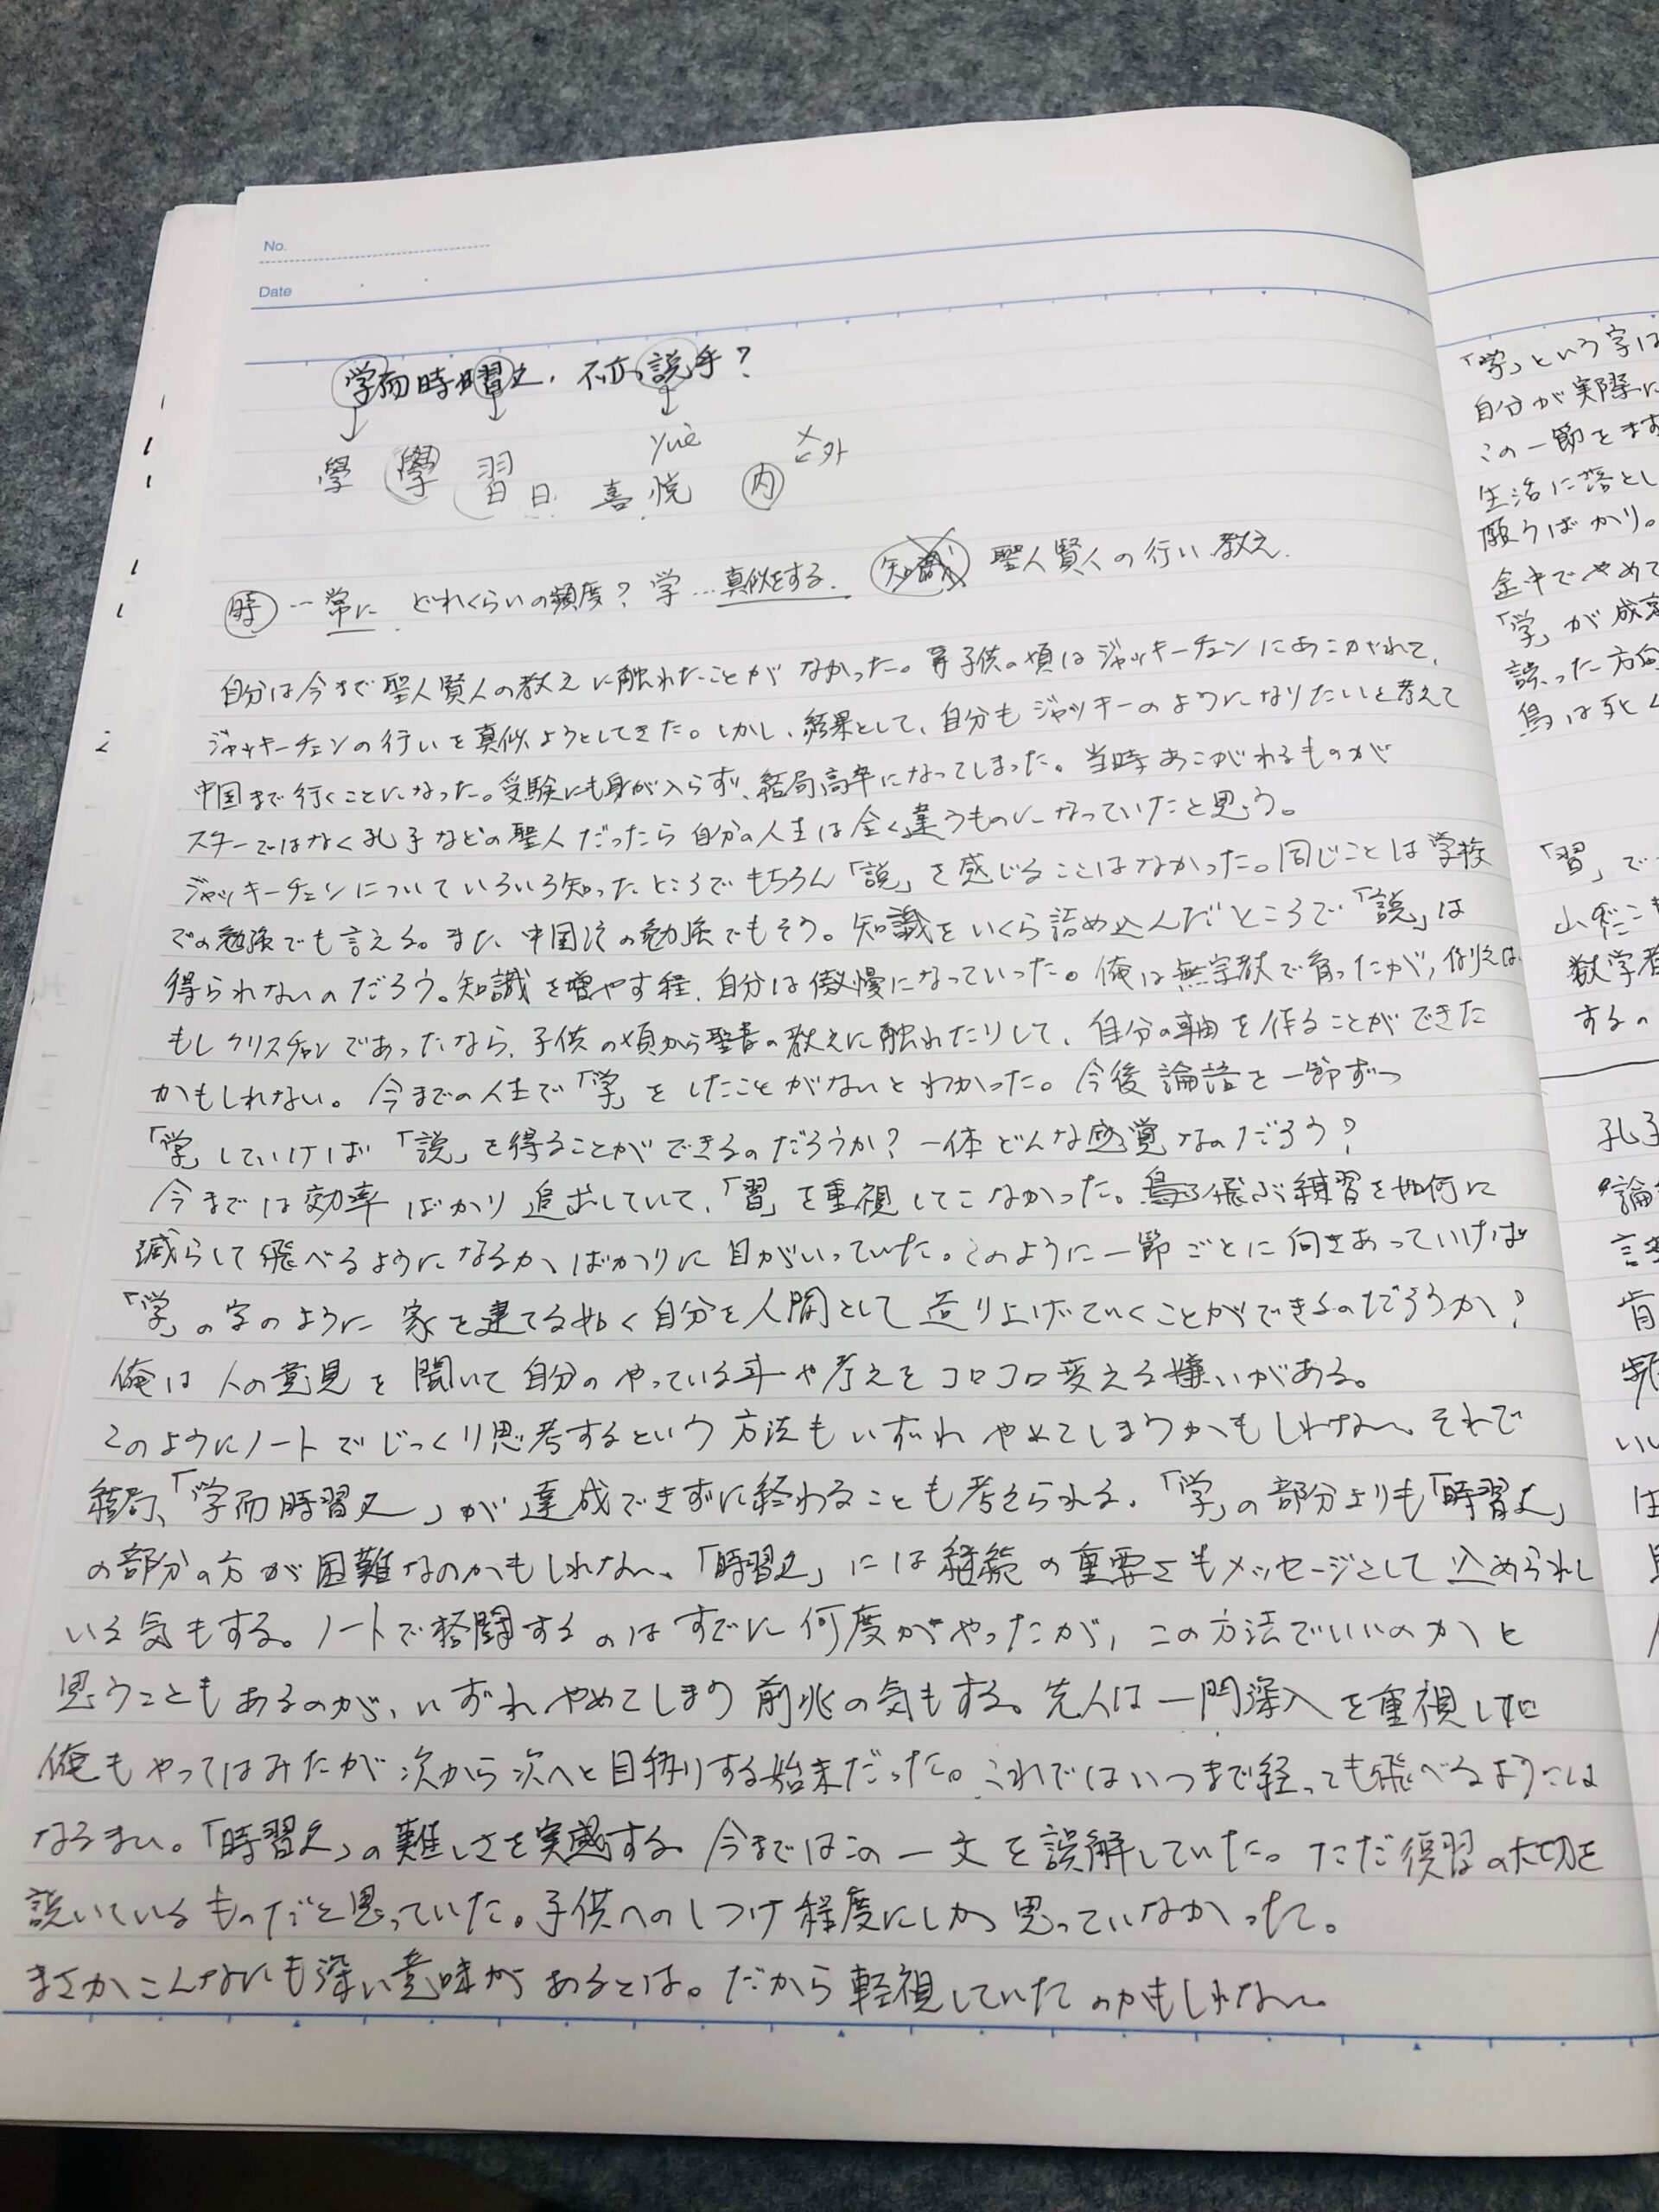 No.
Date
学而時習之、不亦説乎？
學 學 習 yuè ×
日 日 喜悦 内 ←外
時 … 常に どれくらいの頻度？ 学 … 真似をする 知識 聖人賢人の行い 教え.
自分は今まで聖人賢人の教えに触れたことがなかった。子供の頃はジャッキーチェンにあこがれて、
ジャッキーチェンの行いを真似ようとしてきた。しかし、結果として、自分もジャッキーのようになりたいと考えて
中国まで行くことになった。受験にも身が入らず、結局高卒になってしまった。当時あこがれるものが
スターではなく孔子などの聖人だったら自分の人生は全く違うものになっていたと思う。
ジャッキーチェンについていろいろ知ったところでもちろん「説」を感じることはなかった。同じことは学校
での勉強でも言える。また、中国での勉強でもそう。知識をいくら詰め込んだところで「説」は
得られないのだろう。知識を増やす程、自分は傲慢になっていった。俺は無宗教で育ったが、例えば、
もしクリスチャンであったなら、子供の頃から聖書の教えに触れたりして、自分の軸を作ることができた
かもしれない。今までの人生で「学」をしたことがないとわかった。今後論語を一節ずつ
「学」していけば「説」を得ることができるのだろうか？一体どんな感覚なのだろう？
今までは効率ばかり追求していて、「習」を重視してこなかった。鳥が飛ぶ練習を如何に
減らして飛べるようになるかばかりに目がいっていた。このように一節ごとに向きあっていけば
「学」の字のように家を建てる如く自分を人間として造り上げていくことができるのだろうか？
俺は人の意見を聞いて自分のやっている事や考えをコロコロ変える嫌いがある。
このようにノートでじっくり思考するという方法もいずれやめてしまうかもしれない。それで
結局、「学而時習之」が達成できずに終わることも考えられる。「学」の部分よりも「時習之」
の部分の方が困難なのかもしれない。「時習之」には継続の重要さもメッセージとして込められて
いる気もする。ノートで格闘するのはすでに何度かやったが、この方法でいいのかと
思うこともあるのが、いずれやめてしまう前兆の気もする。先人は一門深入を重視した
俺もやってはみたが次から次へと目移りする始末だった。これではいつまで経っても飛べるようには
なるまい。「時習之」の難しさを実感する。今まではこの一文を誤解していた。ただ復習の大切を
説いているものだと思っていた。子供へのしつけ程度にしか思っていなかった。
まさかこんなにも深い意味があるとは。だから軽視していたのかもしれない。
「学」という字は
自分が実際に
この一節をます
生活に落とし
願うばかり。
途中でやめて
「学」が成
誤った方向
鳥は死
「習」で
数学者
するの
孔子